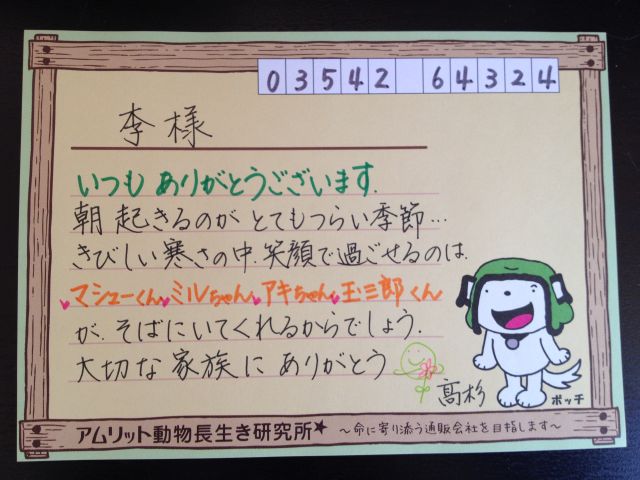 03542 64324
李様
いつも ありがとうございます.
朝 起きるのが とてもつらい季節…
きびしい寒さの中.笑顔で過ごせるのは.
マシューくん♥ミルちゃん♥アキちゃん♥玉三郎くん
が.そばにいてくれるからでしょう.
大切な家族に ありがとう
高杉
ポッチ
アムリット動物長生き研究所★ ～命に寄り添う通販会社を目指します～